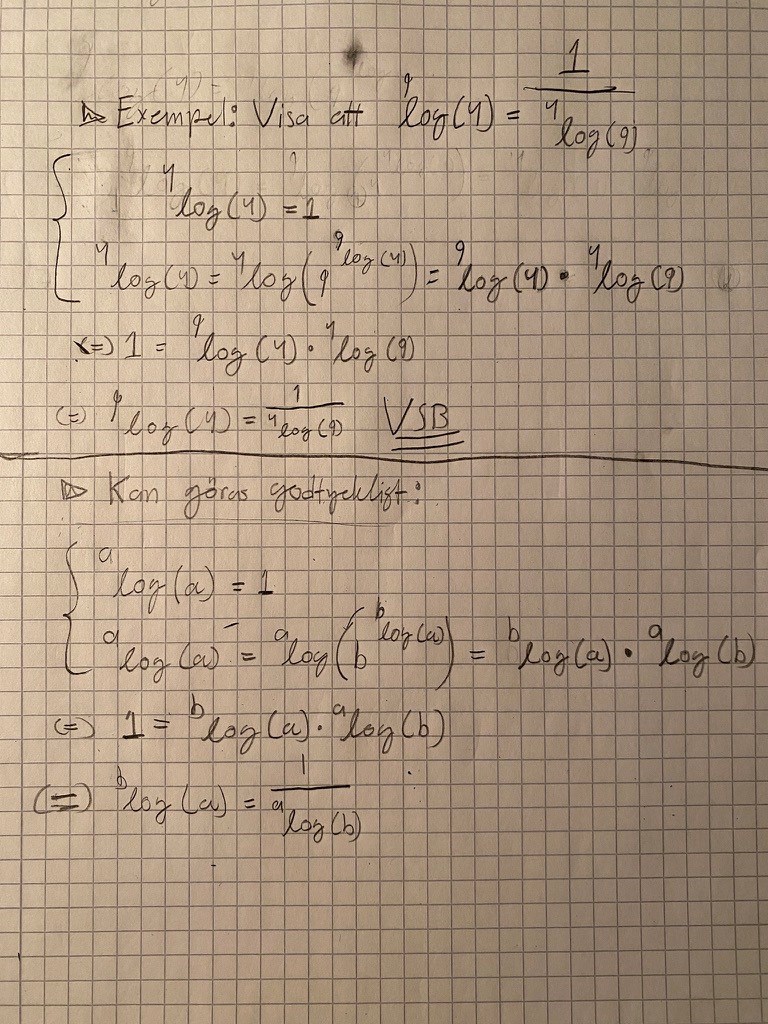 ▷ Exempel: Visa att ⁹log(4) = 1/⁴log(9)
{ ⁴log(4) = 1
⁴log(4) = ⁴log(9^(⁹log(4))) = ⁹log(4) · ⁴log(9)
(=) 1 = ⁹log(4) · ⁴log(9)
(=) ⁹log(4) = 1/⁴log(9) VSB
▷ Kan göras godtyckligt:
{ ᵃlog(a) = 1
ᵃlog(a) = ᵃlog(b^(ᵇlog(a))) = ᵇlog(a) · ᵃlog(b)
(=) 1 = ᵇlog(a) · ᵃlog(b)
(=) ᵇlog(a) = 1/ᵃlog(b)